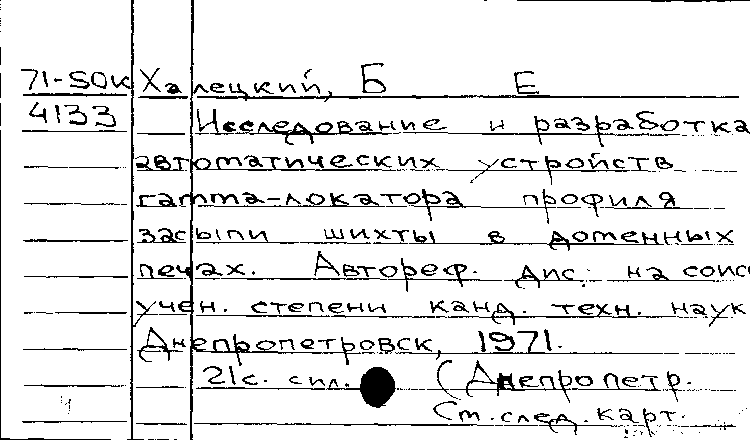 71-50К Халецкий, Б Е
4133 Исследование и разработка
автоматических устройств
гамма-локатора профиля
засыпи шихты в доменных
печах. Автореф. дис. на соиск
учен. степени канд. техн. наук
Днепропетровск, 1971.
21с. с ил. (Днепропетр.
См. след. карт.